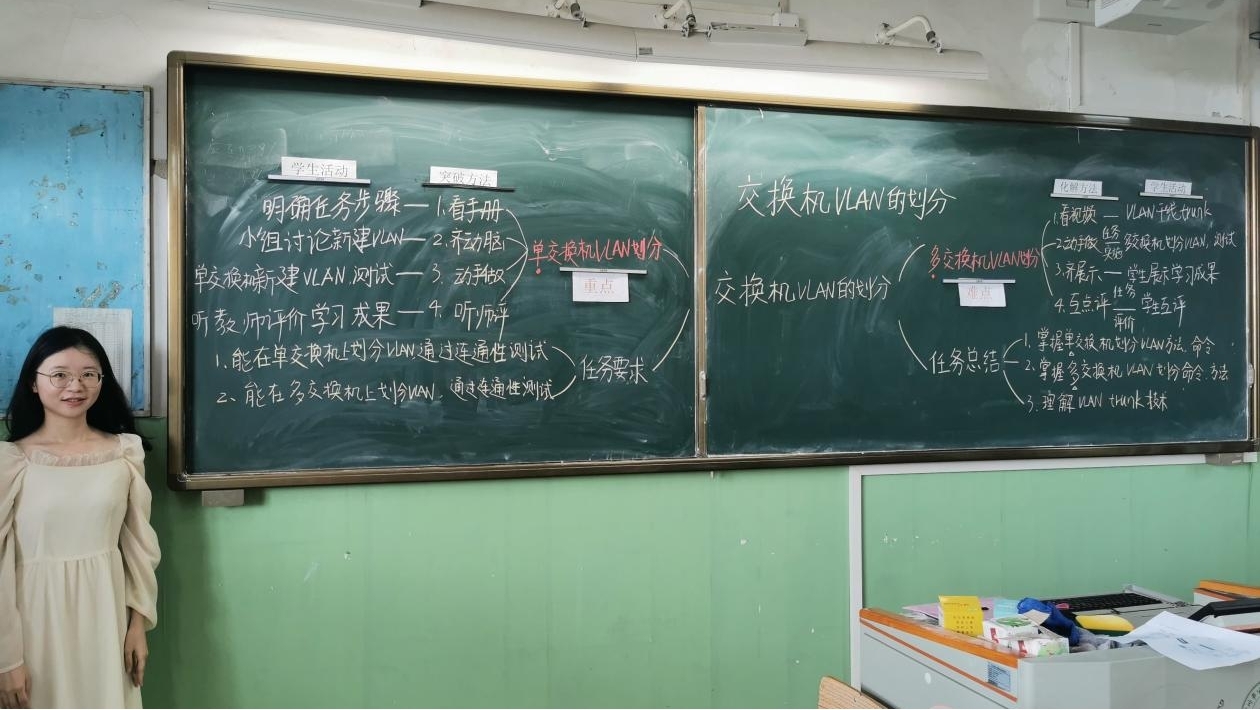 学生活动
突破方法
明确任务步骤 — 1.看手册
小组讨论新建VLAN — 2.齐动脑
单交换机新建VLAN.测试 — 3.动手做
听教师评价学习成果 — 4.听师评
单交换机VLAN划分
重点
1.能在单交换机上划分VLAN通过连通性测试
2、能在多交换机上划分VLAN.通过连通性测试
任务要求
交换机VLAN的划分
交换机VLAN的划分
化解方法
学生活动
多交换机VLAN划分
难点
1.看视频 — VLAN干线trunk
2.动手做 任务实施 多交换机划分VLAN,测试
3.齐展示 — 学生展示学习成果
4.互点评 任务评价 学生互评
任务总结
1.掌握单交换机划分VLAN方法.命令.
2.掌握多交换机VLAN划分命令.方法
3.理解VLAN trunk技术